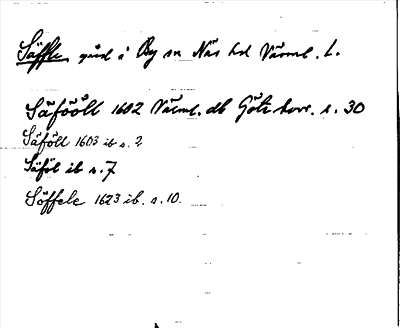 Säffle gård i By sn Näs hd Värml. L.
Säfööll 1602 Värml. db Göt. hovr. s. 30
Säföll 1603 ib s. 2
Säföl ib s. 7
Söffele 1623 ib. s. 10.